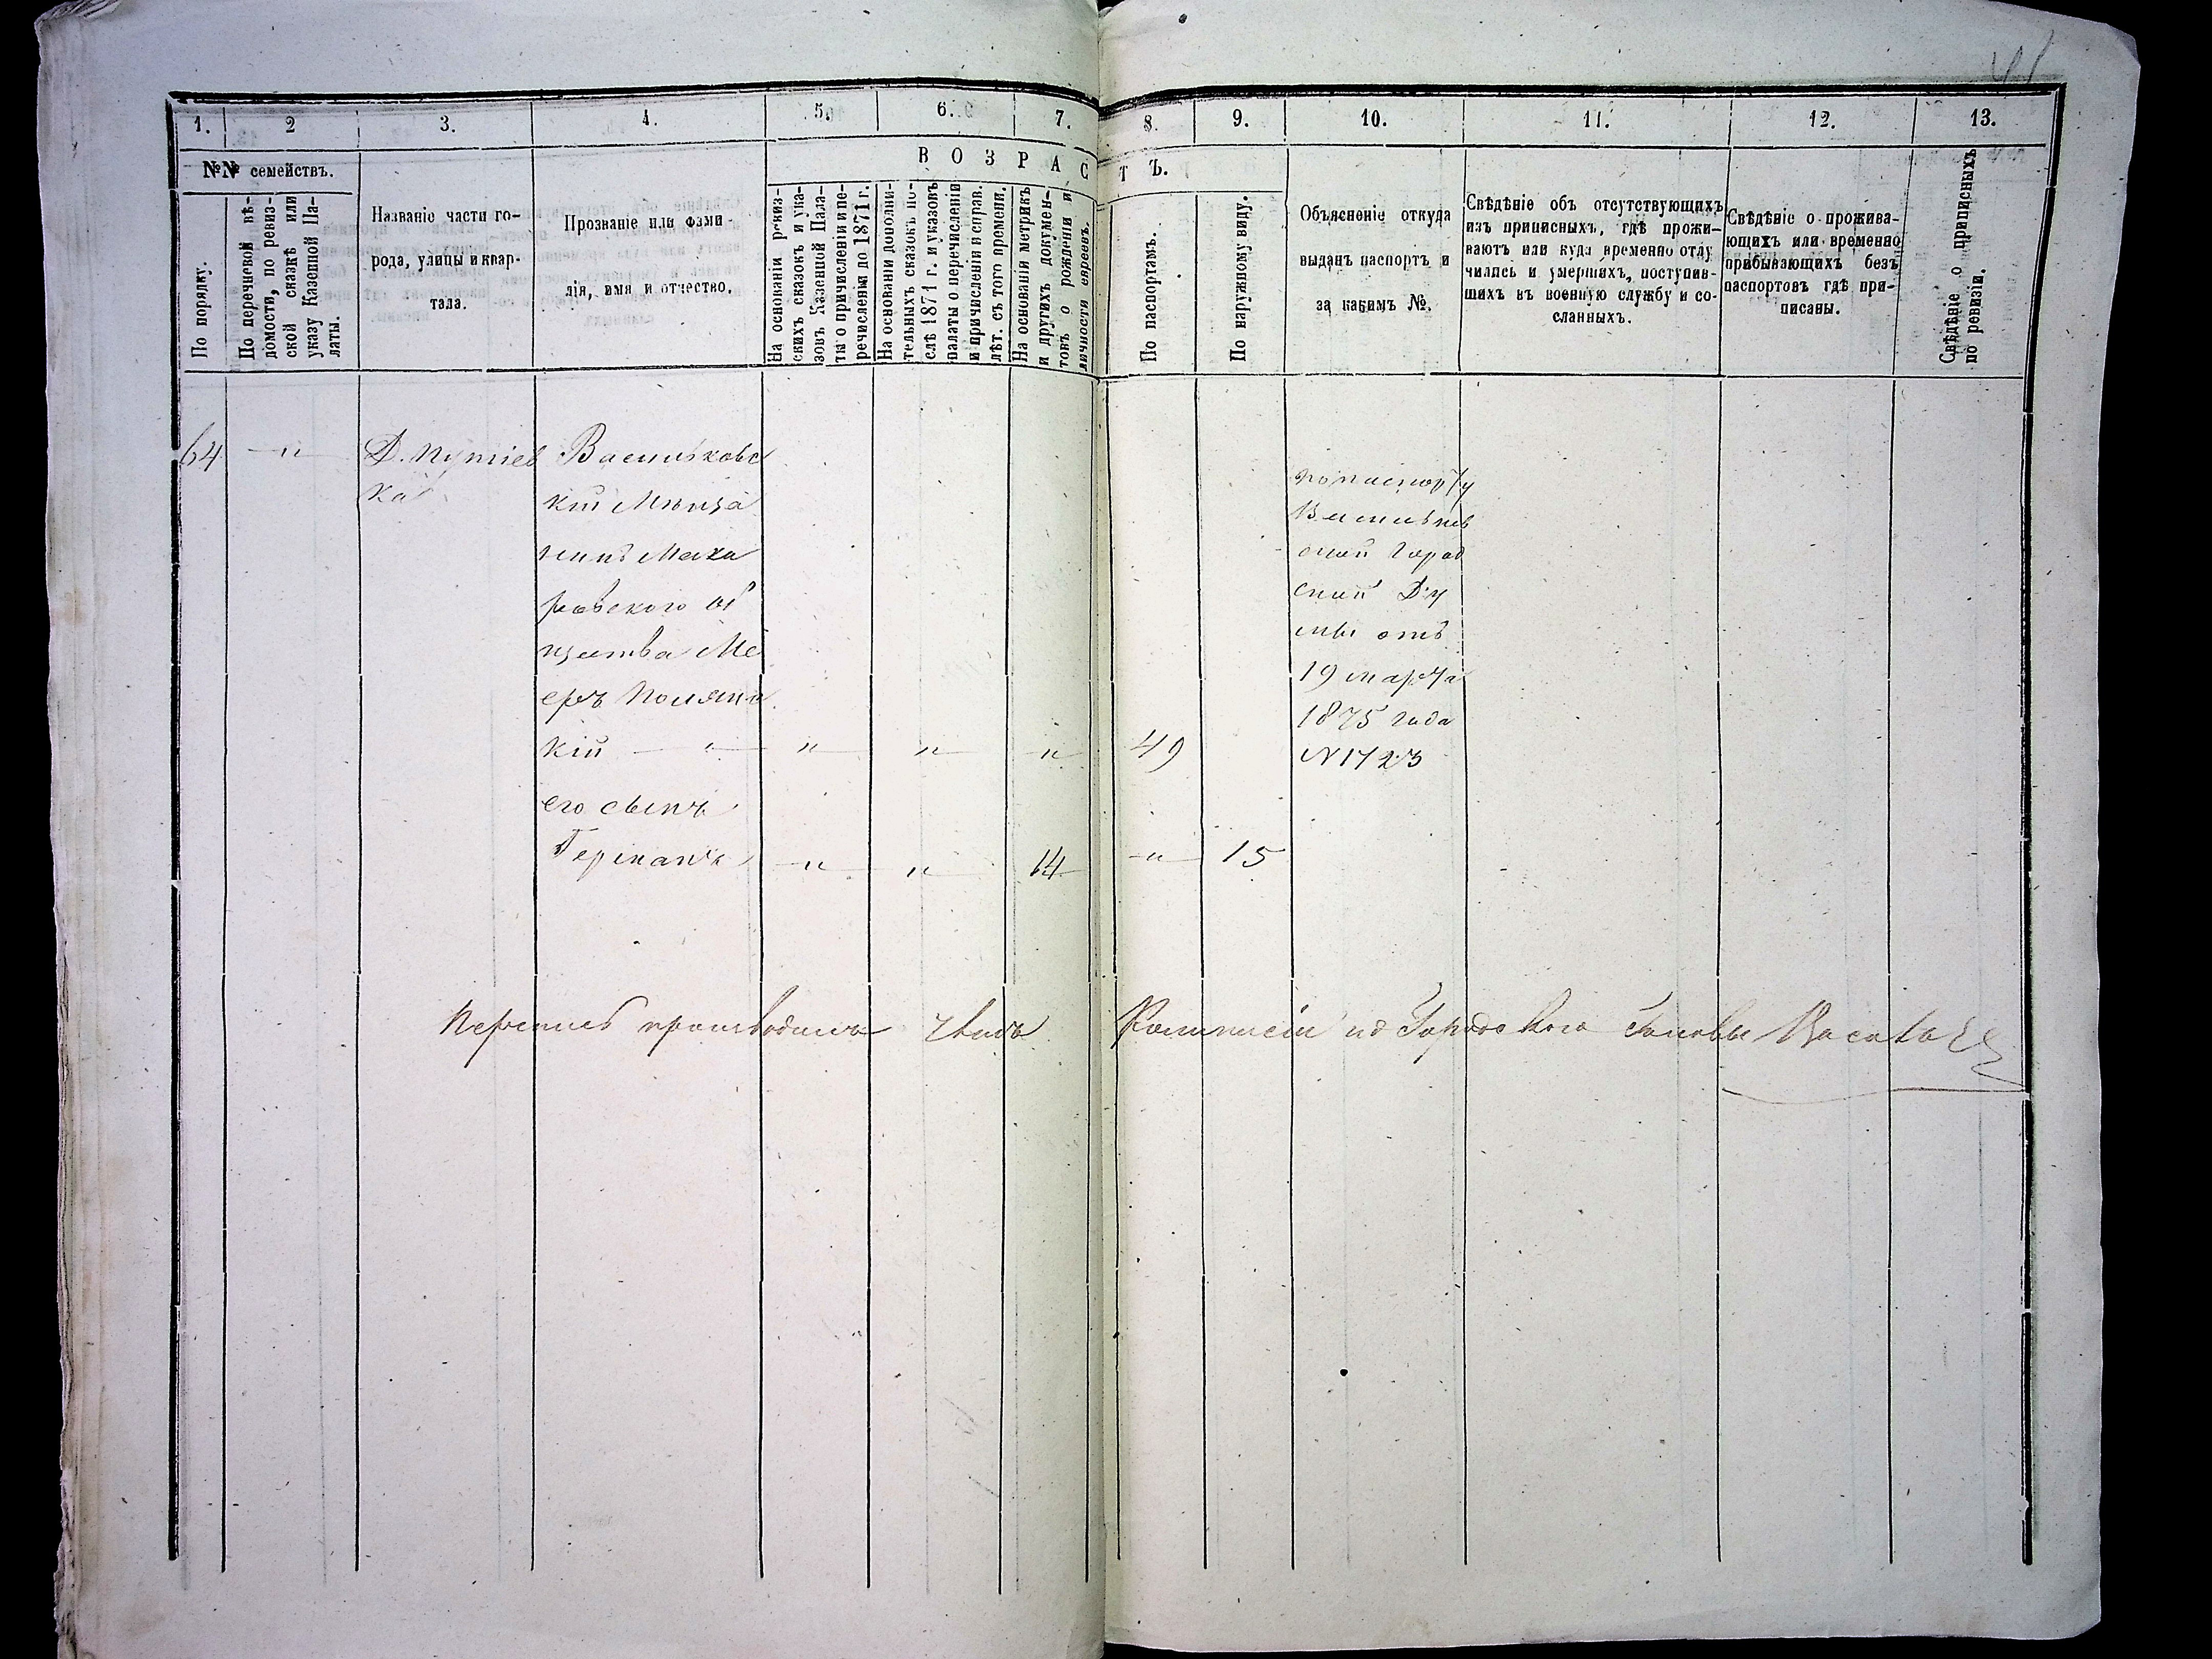 41
1. 2 3. 4. 5. 6. 7. 8. 9. 10. 11. 12. 13.
№№ семействъ.
По порядку.
По перечневой вѣ-
домости, по ревиз-
ской сказкѣ или
указу Казенной Па-
латы.
Названіе части го-
рода, улицы и квар-
тала.
Прозваніе или фами-
лія, имя и отчество.
ВОЗРАСТЪ.
На основаніи ревиз-
скихъ сказокъ и ука-
зовъ Казенной Пала-
ты о причисленіи и пе-
речислены до 1871 г.
На основаніи дополни-
тельныхъ сказокъ по-
слѣ 1871 г. и указовъ
палаты о перечисленіи
и причисленіи и справ.
лѣт. съ того времени.
На основаніи метрикъ
и другихъ докумен-
товъ о рожденіи и
личности евреевъ.
По паспортамъ.
По наружному виду.
Объясненіе откуда
выданъ паспортъ и
за какимъ №.
Свѣдѣніе объ отсутствующихъ
изъ приписныхъ, гдѣ прожи-
ваютъ или куда временно отлу
чились и умершихъ, поступив-
шихъ въ военную службу и со-
сланныхъ.
Свѣдѣніе о прожива-
ющихъ или временно
прибывающихъ безъ
паспортовъ гдѣ при-
писаны.
Свѣдѣніе о приписныхъ
по ревизіи.
64 — " — Д. Путіев
ка
Васильковс
кій Мѣща
нинъ Мака
ровского об
щества Ме
еръ Полянс
кій — " — " — " — " 49
его сынъ
Германъ — " — " 14 — " — 15
по паспорту
Васильков
ской Город
ской Ду
мы отъ
19 марта
1875 года
№ 1723
Перепись производилъ Членъ Коммисіи Городского Головы